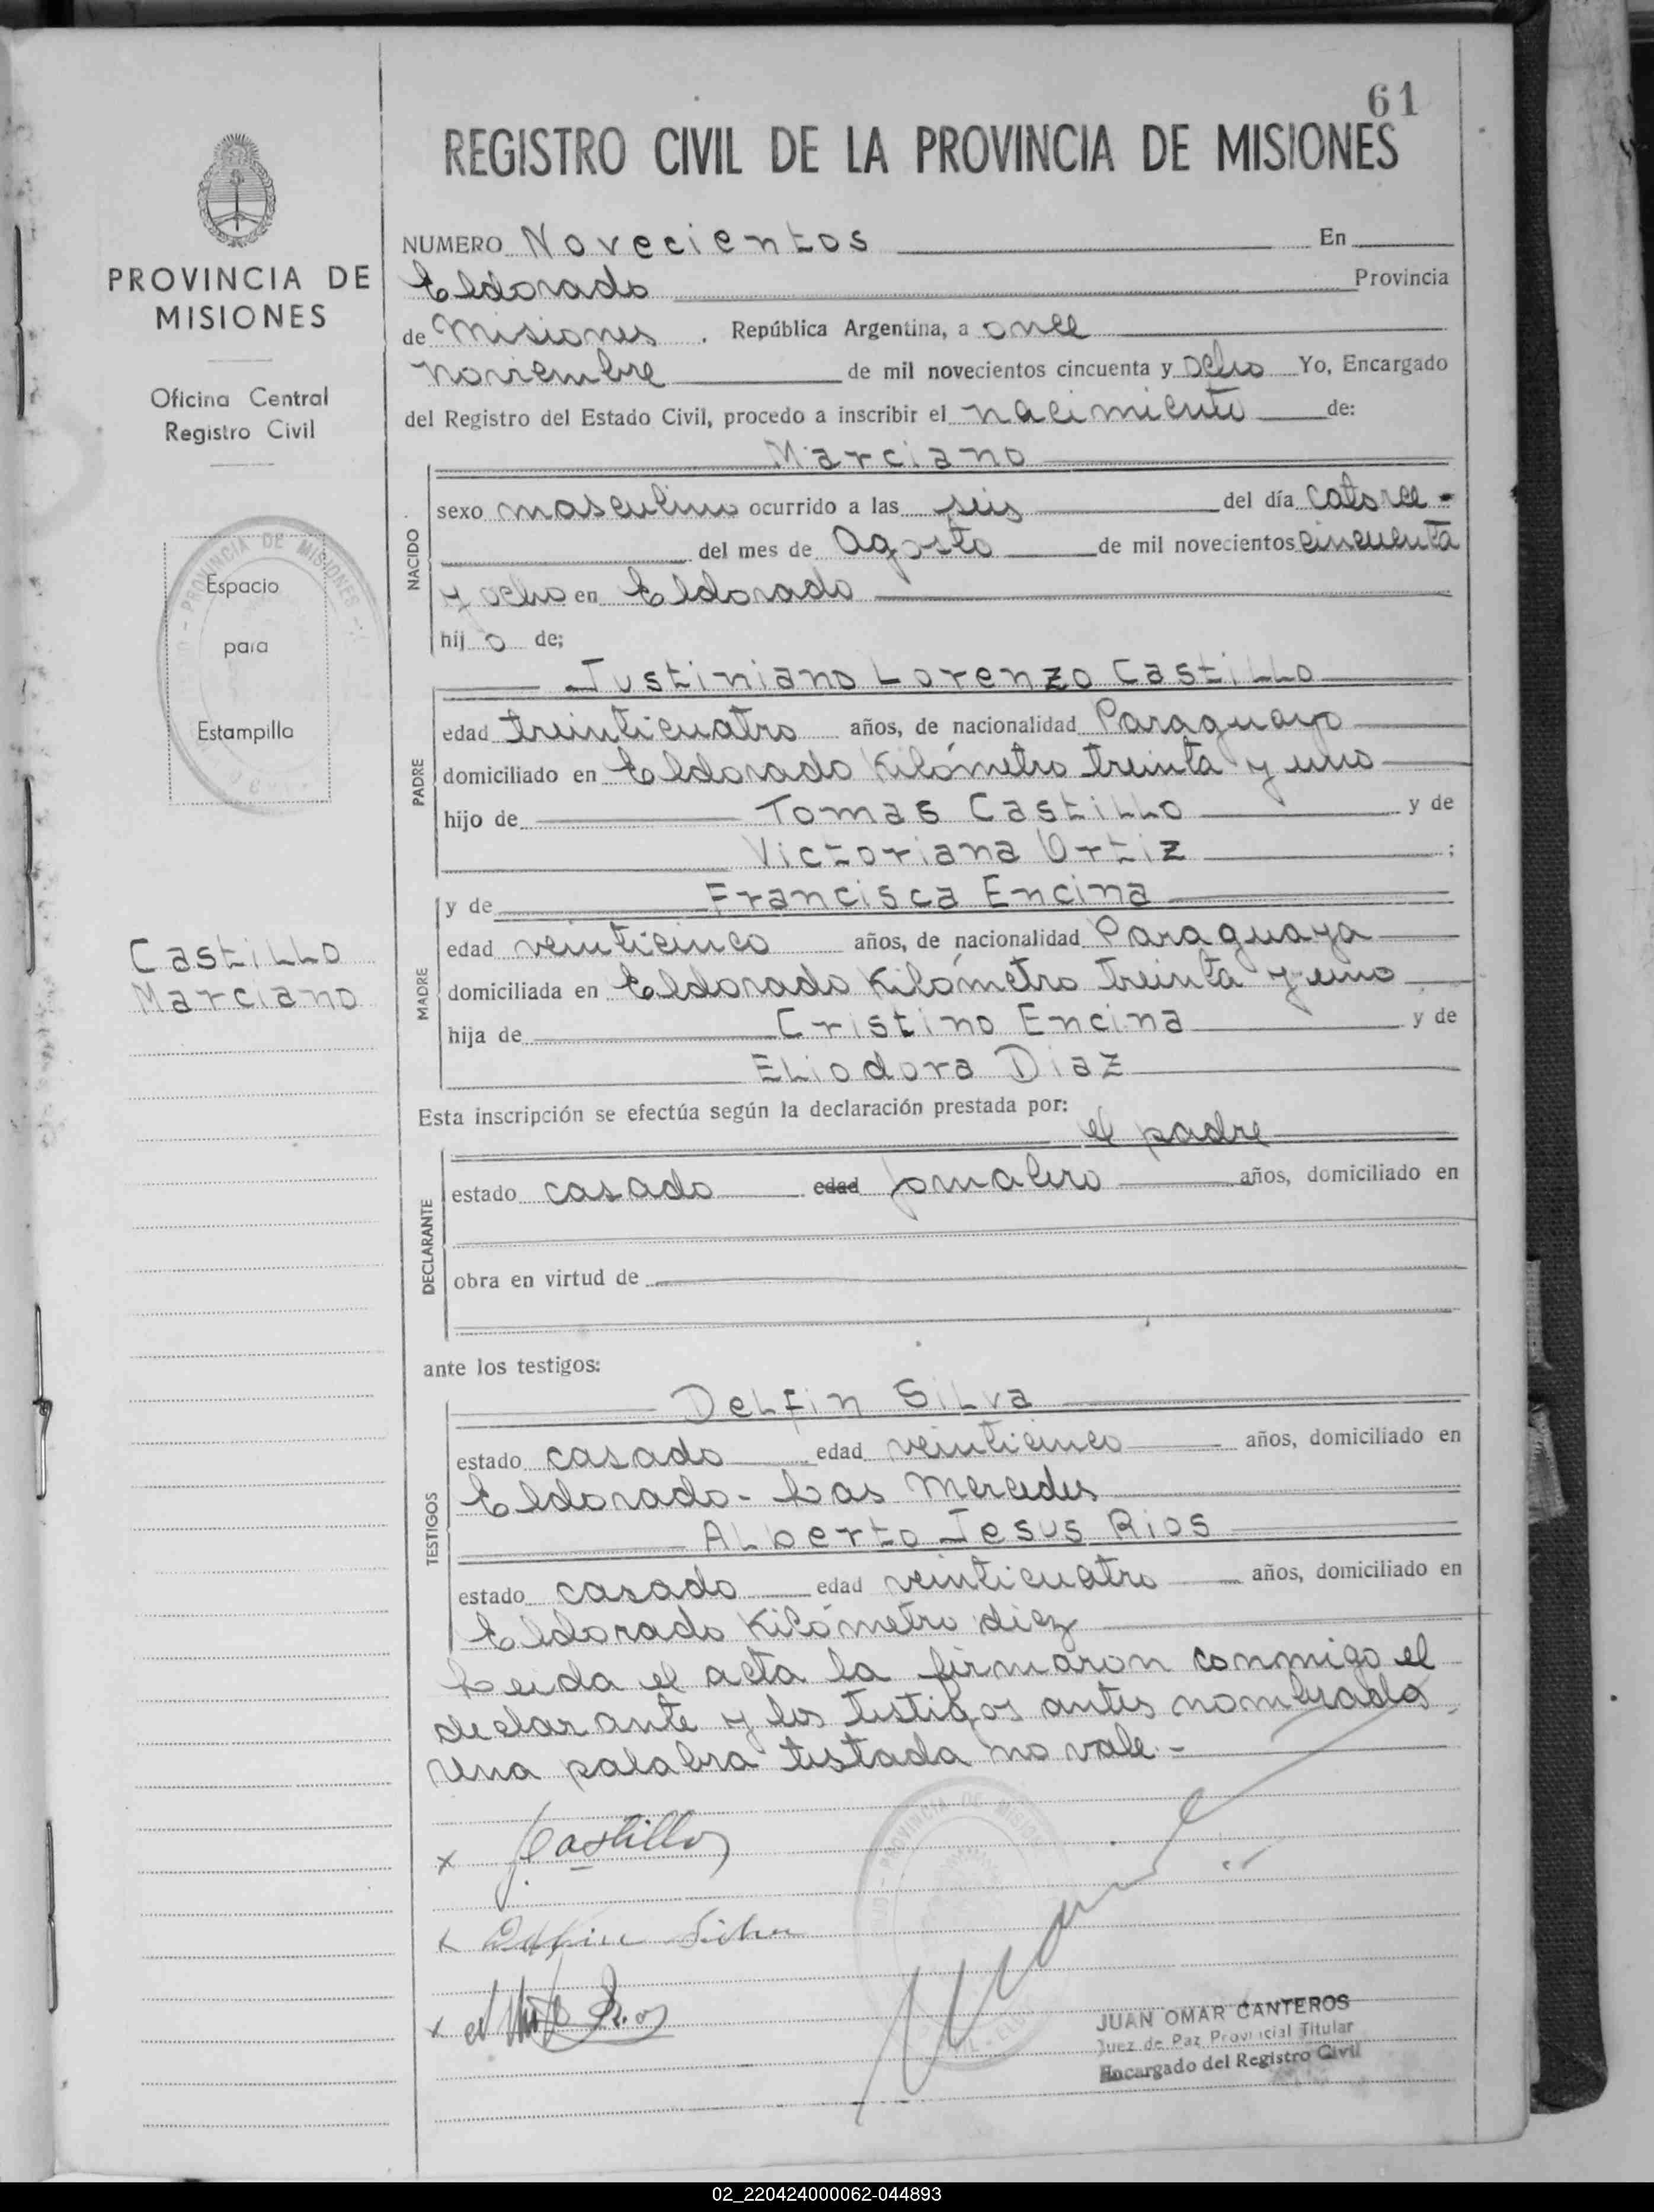 61
REGISTRO CIVIL DE LA PROVINCIA DE MISIONES
PROVINCIA DE
MISIONES
Oficina Central
Registro Civil
PROVINCIA DE MISIONES
Espacio
para
Estampilla
Castillo
Marciano
NUMERO Novecientos En
Eldorado Provincia
de Misiones, República Argentina, a once
noviembre de mil novecientos cincuenta y ocho Yo, Encargado
del Registro del Estado Civil, procedo a inscribir el nacimiento de:
NACIDO
Marciano
sexo masculino ocurrido a las seis del día catorce -
del mes de Agosto de mil novecientos cincuenta
y ocho en Eldorado
hijo de;
PADRE
Justiniano Lorenzo Castillo
edad treinticuatro años, de nacionalidad Paraguayo
domiciliado en Eldorado Kilómetro treinta y uno
hijo de Tomas Castillo y de
Victoriana Ortiz ;
MADRE
y de Francisca Encina
edad veinticinco años, de nacionalidad Paraguaya
domiciliada en Eldorado Kilómetro treinta y uno
hija de Cristino Encina y de
Eliodora Diaz
Esta inscripción se efectúa según la declaración prestada por:
DECLARANTE
el padre
estado casado edad jornalero años, domiciliado en
obra en virtud de
ante los testigos:
TESTIGOS
Delfin Silva
estado casado edad veinticinco años, domiciliado en
Eldorado - Las Mercedes
Alberto Jesus Rios
estado casado edad veinticuatro años, domiciliado en
Eldorado Kilómetro diez
Leida el acta la firmaron conmigo el
declarante y los testigos antes nombrados.
Una palabra testada no vale -
x J Castillo
x Delfin Silva
x Rios
PROVINCIA DE MISIONES
JUAN OMAR CANTEROS
Juez de Paz Provincial Titular
Encargado del Registro Civil
02_220424000062-044893